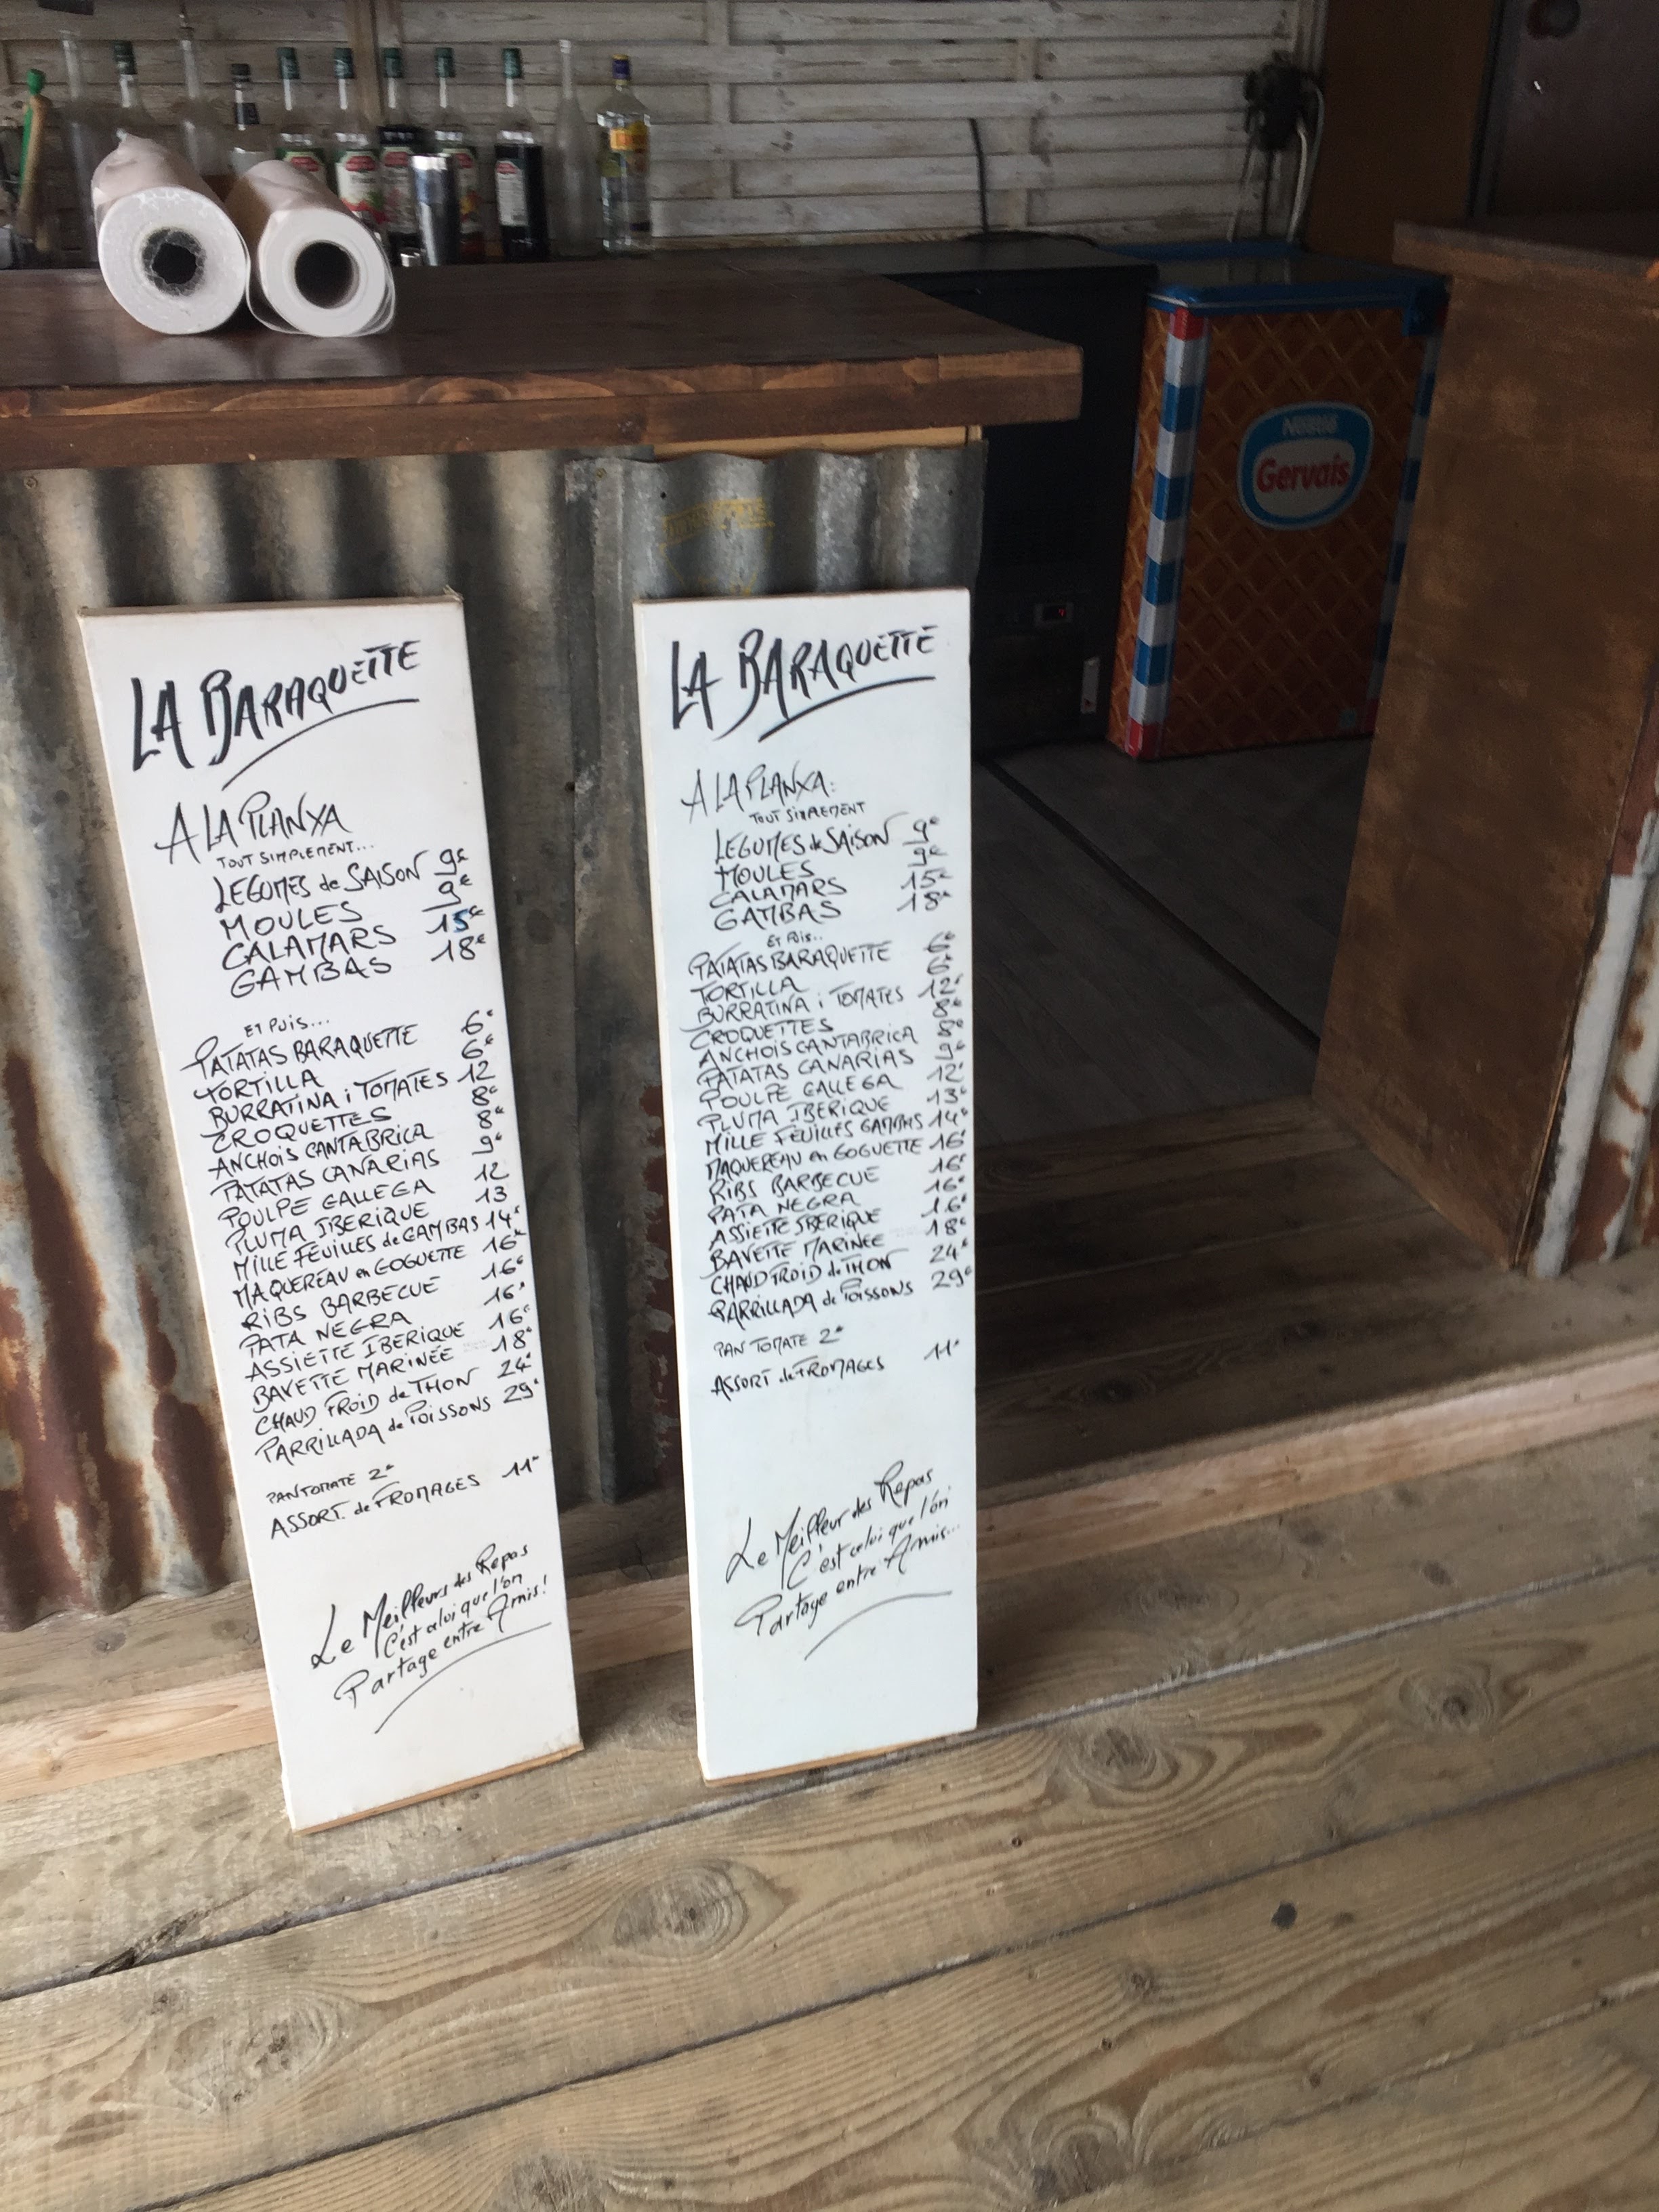 Nestlé
Gervais
LA BARAQUETTE
A LA PLANXA
TOUT SIMPLEMENT...
LEGUMES de SAISON 9€
MOULES 9€
CALAMARS 15€
GAMBAS 18€
ET PUIS...
PATATAS BARAQUETTE 6€
TORTILLA 6€
BURRATINA i TOMATES 12
CROQUETTES 8€
ANCHOIS CANTABRICA 8€
PATATAS CANARIAS 9€
POULPE GALLEGA 12
PLUMA IBERIQUE 13
MILLE FEUILLES de GAMBAS 14€
MAQUEREAU en GOGUETTE 16€
RIBS BARBECUE 16€
PATA NEGRA 16€
ASSIETTE IBERIQUE 16€
BAVETTE MARINÉE 18€
CHAUD FROID de THON 24€
PARRILLADA de POISSONS 29€
PAN TOMATE 2€
ASSORT. de FROMAGES 11€
Le Meilleurs des Repas
C'est celui que l'on
Partage entre Amis!
LA BARAQUETTE
A LA PLANXA:
TOUT SIMPLEMENT
LEGUMES de SAISON 9€
MOULES 9€
CALAMARS 15€
GAMBAS 18€
ET PUIS..
PATATAS BARAQUETTE 6€
TORTILLA 6€
BURRATINA i TOMATES 12€
CROQUETTES 8€
ANCHOIS CANTABRICA 8€
PATATAS CANARIAS 9€
POULPE GALLEGA 12€
PLUMA IBERIQUE 13€
MILLE FEUILLES GAMBAS 14€
MAQUEREAU en GOGUETTE 16€
RIBS BARBECUE 16€
PATA NEGRA 16€
ASSIETTE IBERIQUE 16€
BAVETTE MARINÉE 18€
CHAUD FROID de THON 24€
PARRILLADA de POISSONS 29€
PAN TOMATE 2€
ASSORT de FROMAGES 11€
Le Meilleur des Repas
C'est celui que l'on
Partage entre Amis...